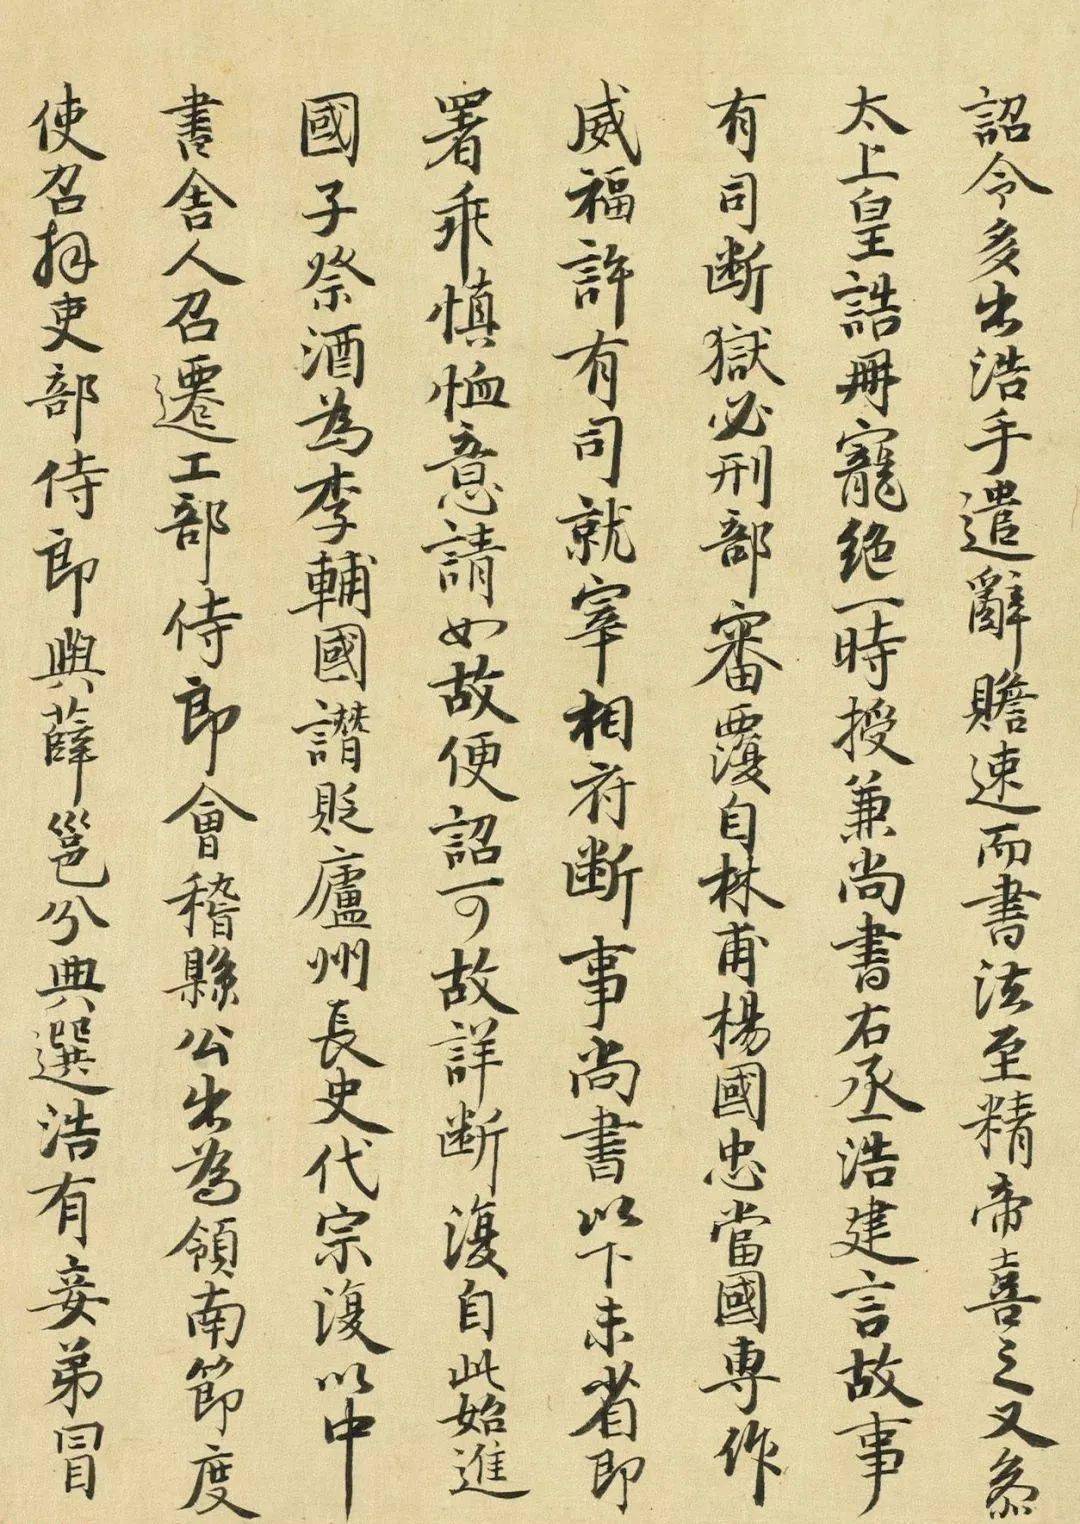 詔令多出浩手遣辭贍速而書法至精帝喜之又叅
太上皇誥冊寵絶一時授兼尚書右丞浩建言故事
有司断獄必刑部審覆自林甫楊國忠當國專作
威福許有司就宰相府断事尚書以下未省即
署乖慎恤意請如故便詔可故詳断復自此始進
國子祭酒為李輔國譖貶廬州長史代宗復以中
書舍人召遷工部侍郎會稽縣公出為領南節度
使召拜吏部侍郎與薛邕分典選浩有妾弟冒